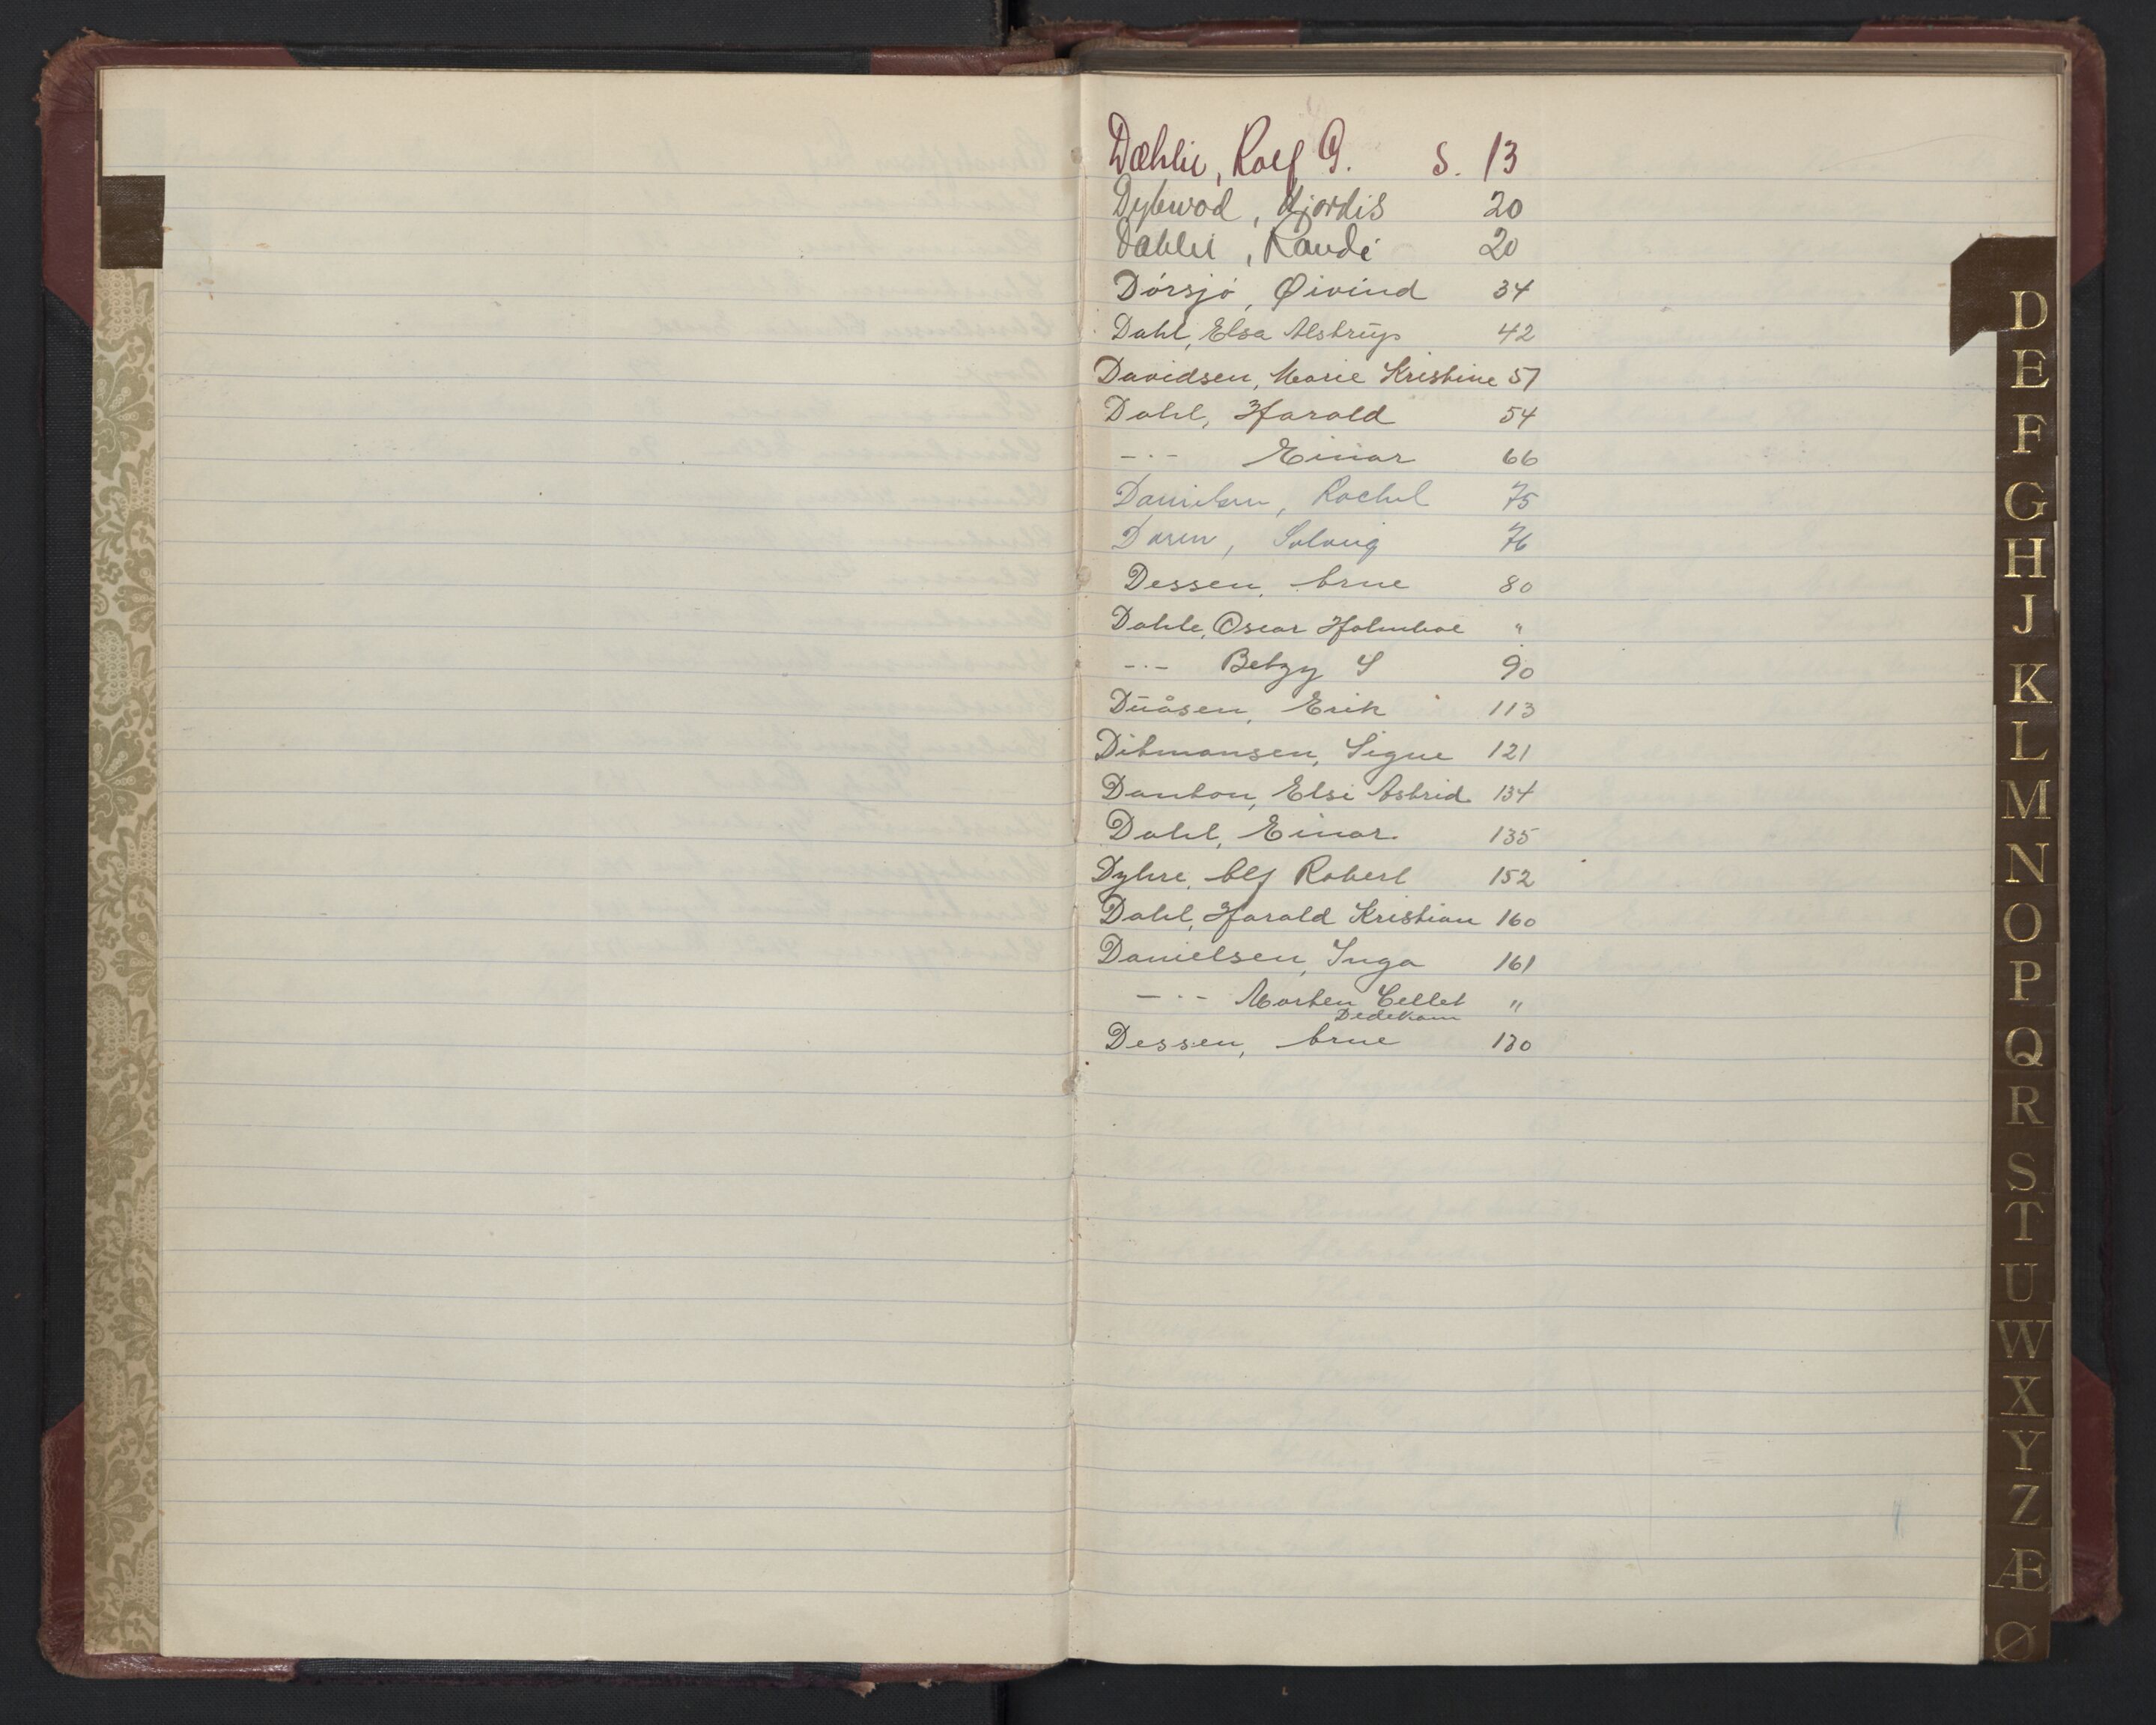 Dæhlie, Rolf G. S. 13
Dybwod, Hjordis 20
Dæhlie, Randi 20
Dórsjó, Øivind 34
Dahl, Elsa Alstrup 42
Davidsen, Marie Kristine 51
Dahl, Harald 54
-·- Einar 66
Danielsen, Rachel 75
Solveig 76
Dessen, Arne 80
Dahle, Oscar Holmboe "
-·- Betzy S 90
Duåsen, Erik 113
Ditmansen, Signe 121
Danbon, Elsi Astrid 134
Dahl, Einar. 135
Dyhre, Alf Robert 152
Dahl, Harald Kristian 160
Danielsen, Inga 161
-·- Morten Cellet "
Dedekam
Dessen, Arne 130
D
E
F
G
H
J
K
L
M
N
O
P
Q
R
S
T
U
W
X
Y
Z
Æ
Ø